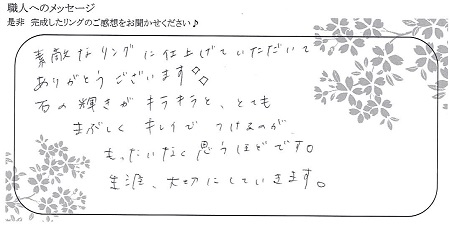 職人へのメッセージ
是非 完成したリングのご感想をお聞かせください♪
素敵なリングに仕上げていただいて
ありがとうございます◇◇
石の輝きがキラキラと、とても
まぶしくキレイでつけるのが
もったいなく思うほどです。
生涯、大切にしていきます。